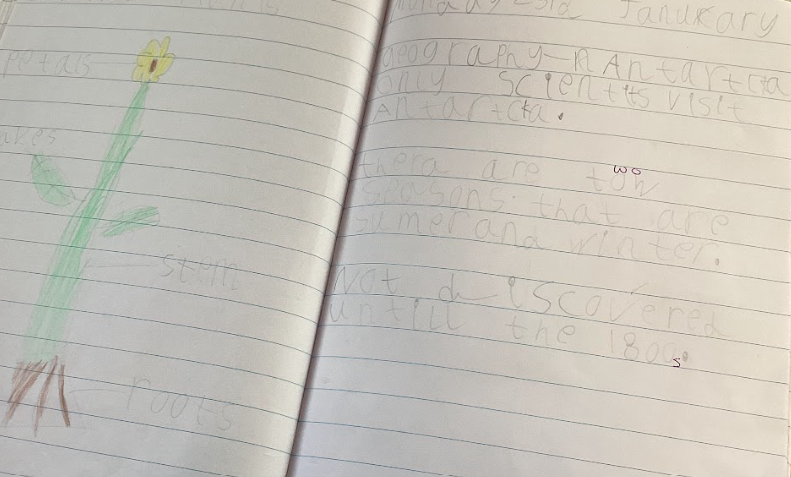 petals
stem
roots
23rd Janurary
Geography - Antartcta
only scientits visit
Antartcta.
thera are tow
wo
seasons. that are
sumer and winter.
Not discovered
untill the 1800s.